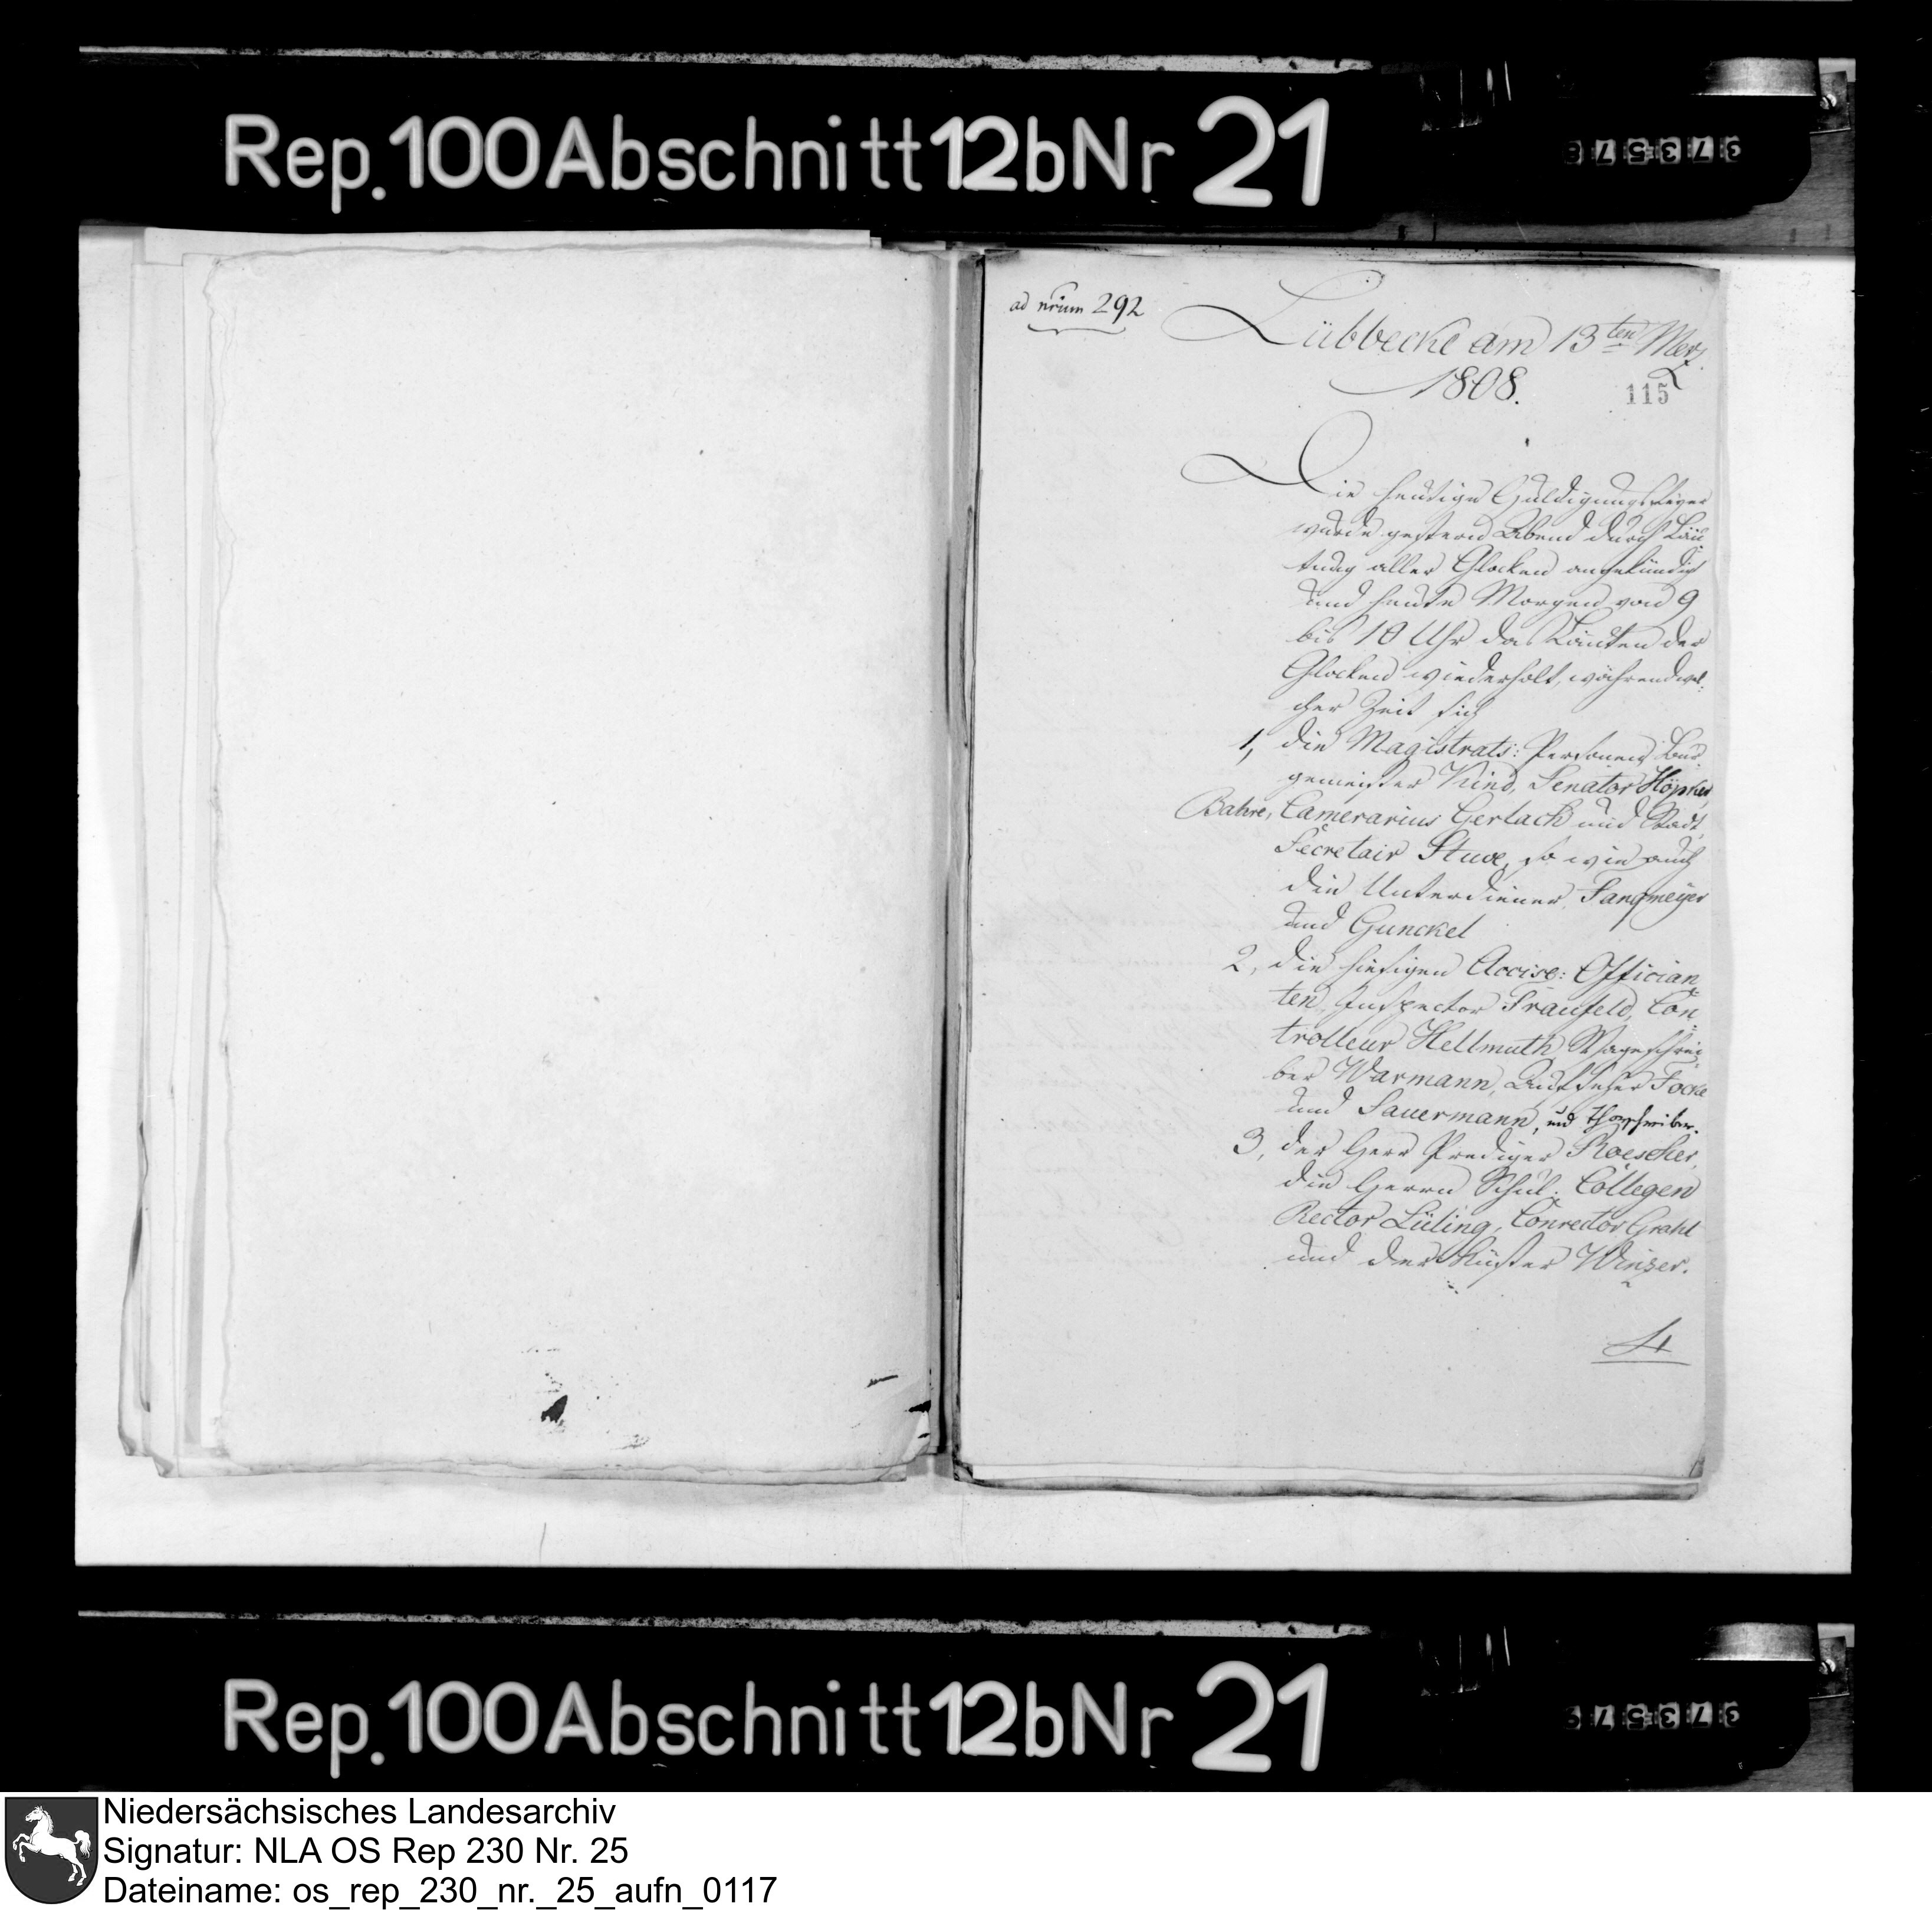 Rep. 100 Abschnitt 12b Nr 21
ad nrum 292
Lübbecke am 13ten Merz
1808.
115
Die heutige Huldigungsfeyer
wurde gestern Abend durch Läu
tung aller Glocken angekündigt
und heute Morgen von 9
bis 10 Uhr das Läuten der
Glocken wiederholt, während wel:
cher Zeit sich
1, die Magistrats: Personen Bur
gemeister Kind, Senator Höpker,
Bahre, Camerarius Gerlach und Stadt
Secretair Stuve, so wie auch
die Unterdiener Fangmeyer
und Gunckel
2, die hiesigen Accise: Offician
ten, Inspector Fraufeld, Con
trolleur Hellmuth, Wageschrei
ber Warmann, Aufseher Focke
und Sauermann, und Thorschreiber.
3, der Herr Prediger Roescher,
die Herrn Schul. Collegen
Rector Lüling, Conrector Grahl
und der Küster Winzer.
4
Rep. 100 Abschnitt 12b Nr 21
Niedersächsisches Landesarchiv
Signatur: NLA OS Rep 230 Nr. 25
Dateiname: os_rep_230_nr._25_aufn_0117